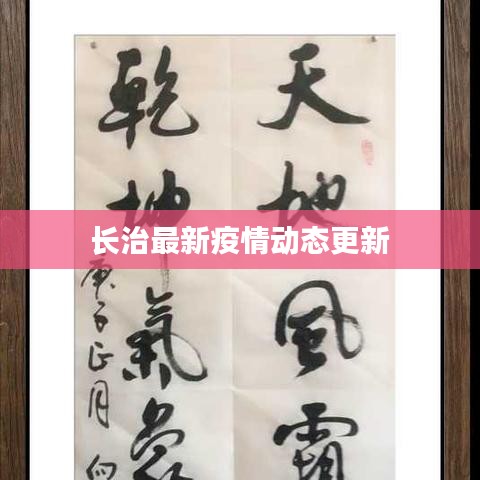 天地風霜
乾坤氣象
庚子正月
长治最新疫情动态更新